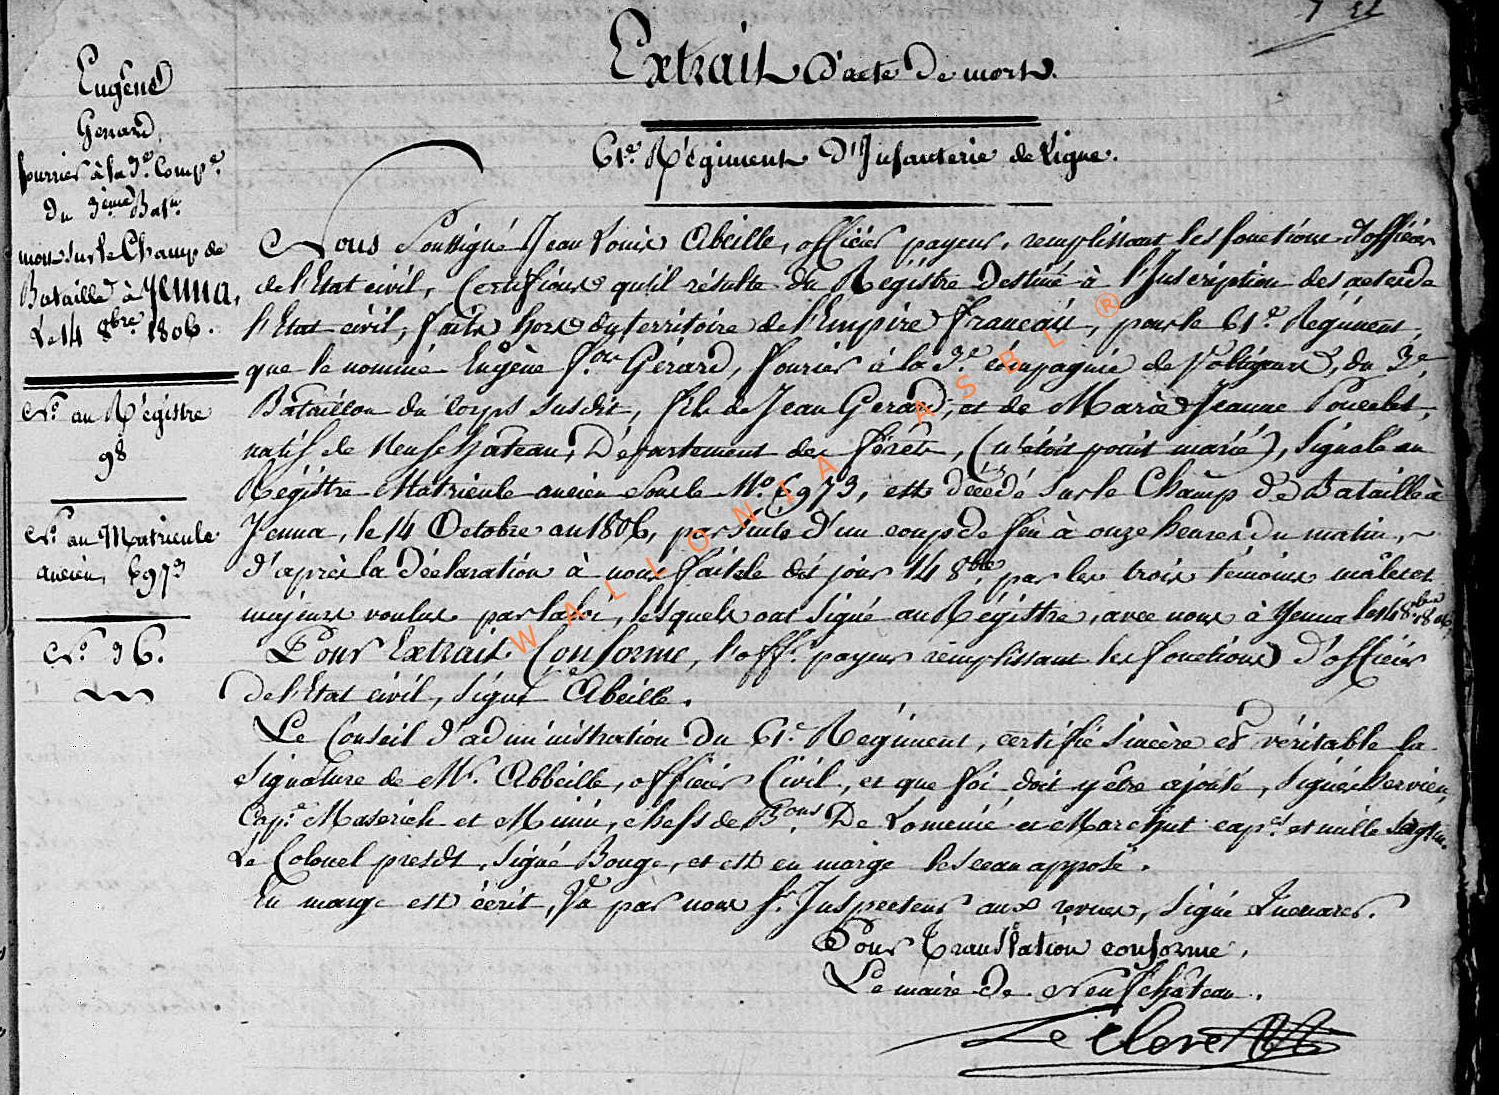 Extrait d'acte de mort.
61e. Régiment d'Infanterie de Ligne.
Eugène
Gerard,
fourrier à la 3e. Compe.
du 3ème Batn.
mort sur le Champ de
Bataille à Yenna,
Le 14 8bre 1806.
No. au Régistre
98
No. au Matricule
ancien, 6973
No. 36.
Nous Soussigné Jean Louis Abeille, officier payeur, remplissant les fonctions d'officier
de l'Etat civil, Certifions qu'il résulte du Régistre Destiné à l'Inscription des actes de
l'Etat civil, faits hors du territoire de l'Empire français, pour le 61e. Régiment,
que le nommé Eugène fois Gérard, fourier à la 3e. compagnie de Voltigeurs, du 3e.
Bataillon du corps susdit, fils de Jean Gerard, et de Marie Jeanne Poncelet,
natif de Neufchateau, Département des forêts, (n'étoit point marié), signalé au
Régistre Matricule ancien sous le No. 6973, est décédé sur le Champ de Bataille à
Jenna, le 14 Octobre an 1806, par suite d'un coup de feu à onze heures du matin,
d'après la déclaration à nous faite le dit jour 14 8bre, par les trois témoins mâles et
majeurs voulus par la loi, lesquels ont signé au Régistre, avec nous à Yenna le 14 8bre 1806.
Pour Extrait Conforme, l'offr. payeur remplissant les fonctions d'officier
de l'Etat civil, signé Abeille.
Le Conseil d'administration du 61e. Régiment, certifie sincère et véritable la
signature de Mr. Abbeille, officier Civil, et que foi doit y être ajouté, signé
Capne. et chefs de Bons. De Lomenie et cape. et
Le Colonel presdt, signé Bouge, et est en marge le sceau apposé.
En marge est écrit, Vu par nous sr. Inspecteur aux revues, signé
Pour Translation conforme,
Le maire de Neufchateau.
Le Clere
WALLONIA ASBL ®